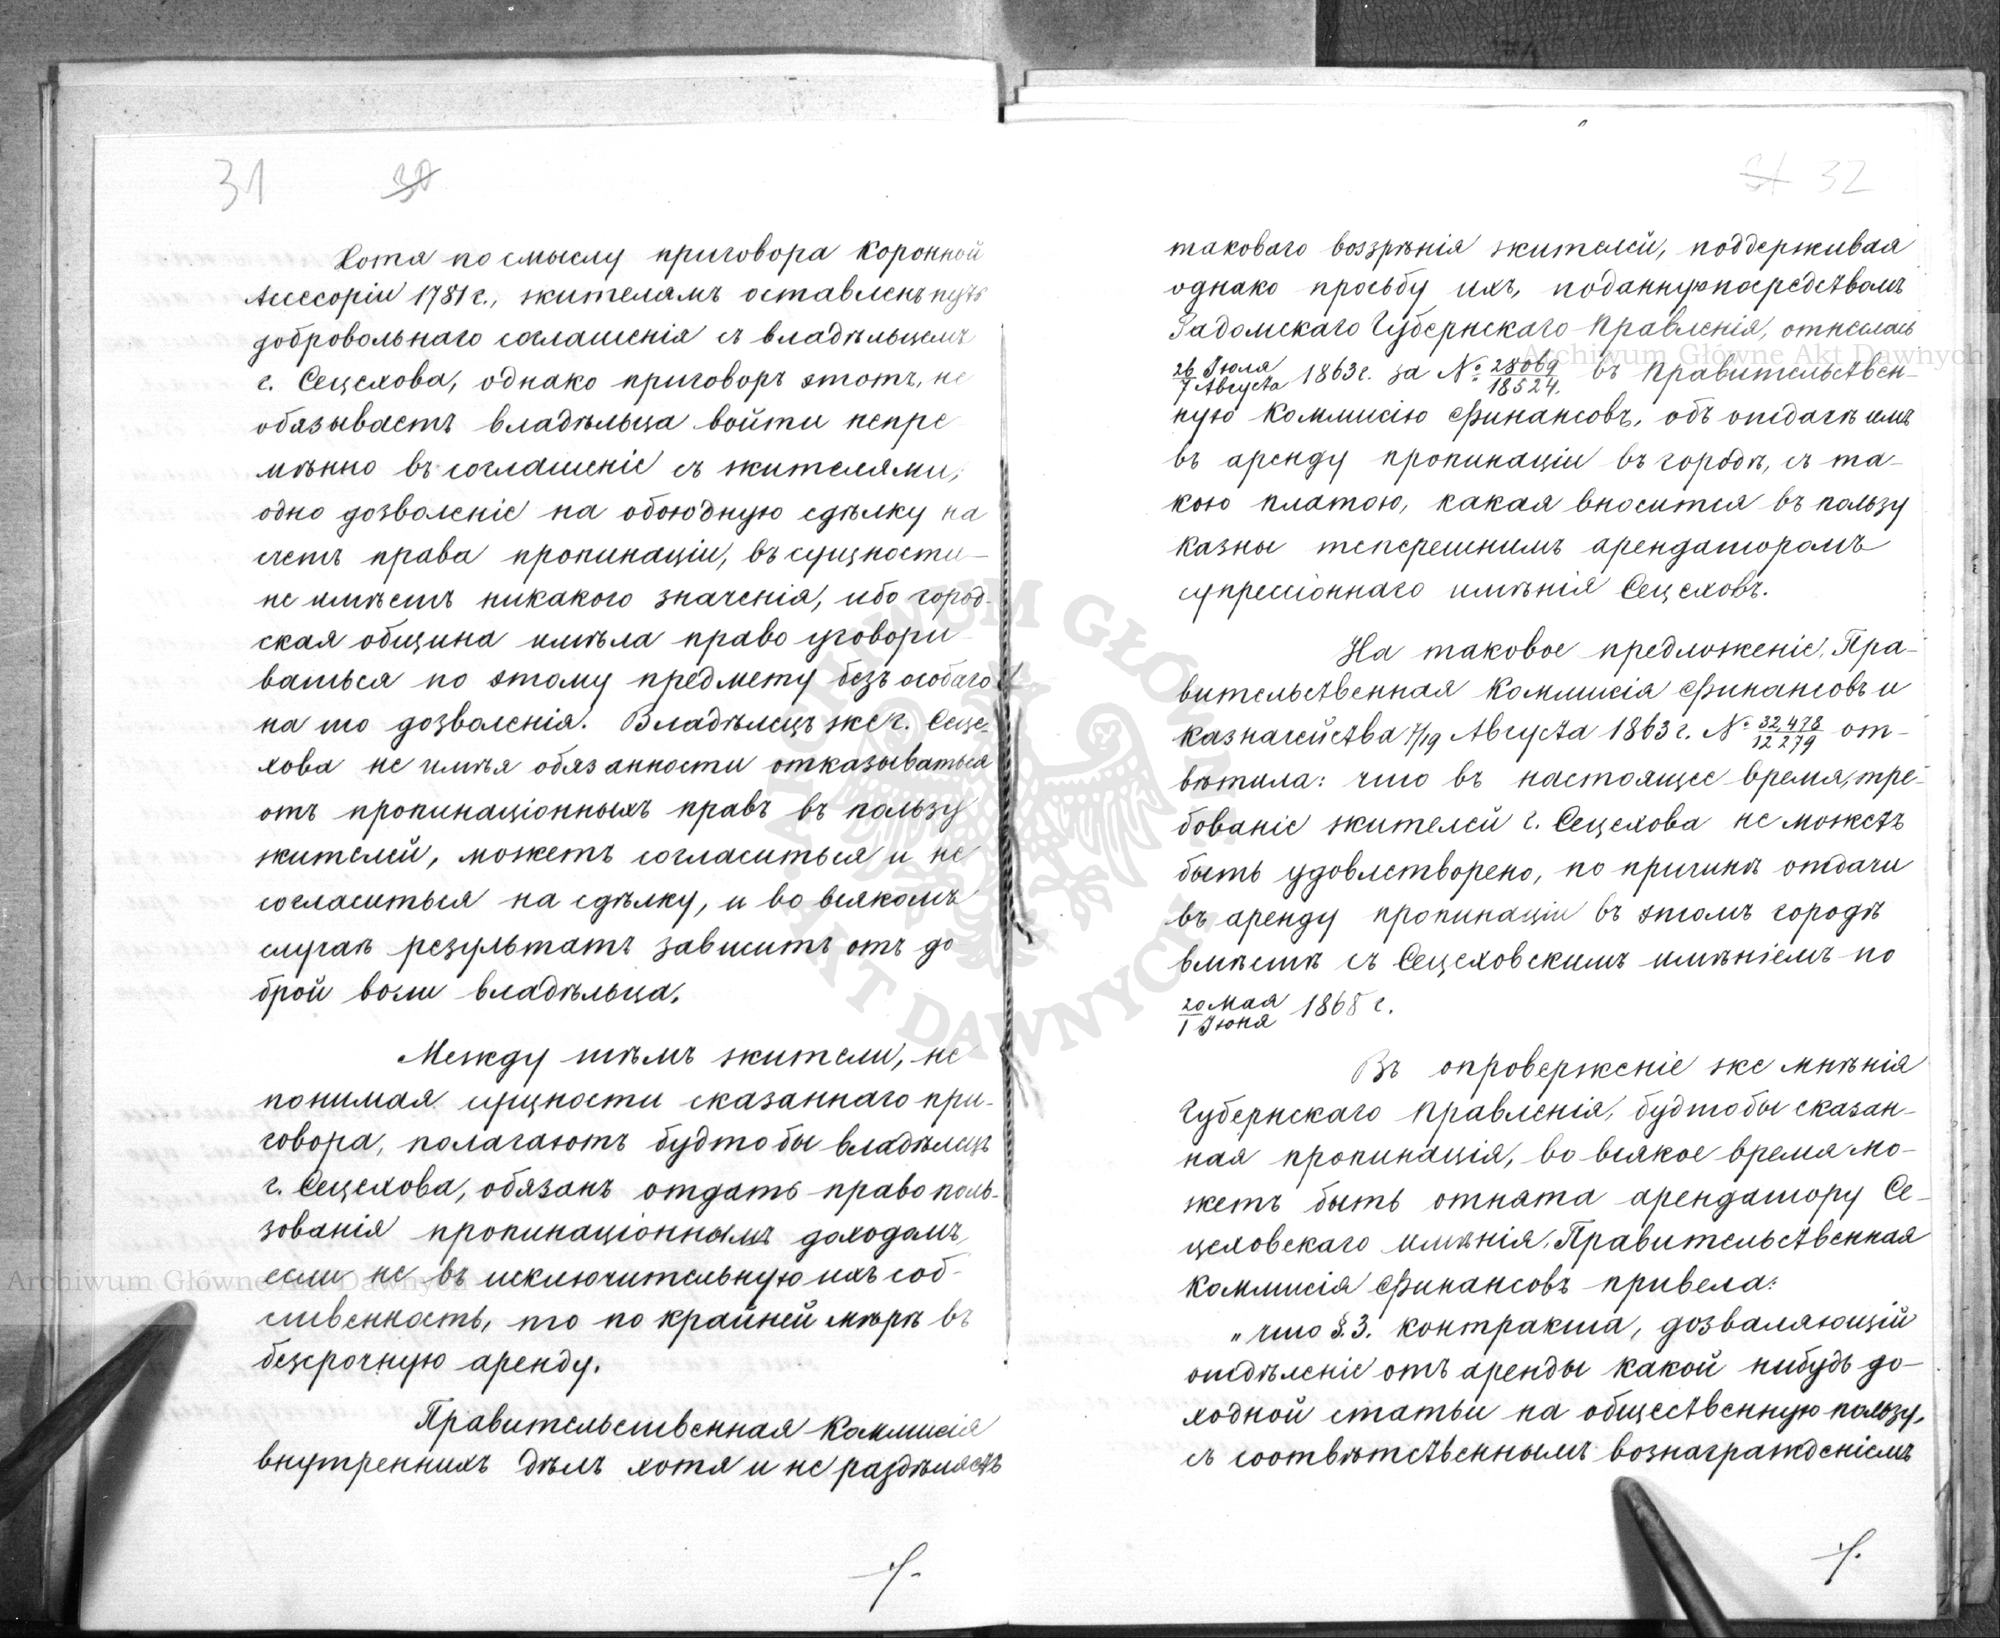 31 30
Хотя по смыслу приговора Коронной
Ассесоріи 1781 г., жителямъ оставленъ путь
добровольнаго соглашенія съ владѣльцемъ
г. Сецехова, однако приговоръ этотъ, не
обязываетъ владѣльца войти непре
мѣнно въ соглашеніе съ жителями,
одно дозволеніе на обоюдную сдѣлку на
счетъ права пропинаціи, въ сущности
не имѣетъ никакого значенія, ибо город-
ская община имѣла право уговори
ваться по этому предмету безъ особаго
на то дозволенія. Владѣлецъ же г. Сеце-
хова не имѣя обязанности отказываться
отъ пропинаціонныхъ правъ въ пользу
жителей, можетъ согласиться и не
согласиться на сдѣлку, и во всякомъ
случаѣ результатъ зависитъ отъ до
брой воли владѣльца.
Между тѣмъ жители, не
понимая сущности сказаннаго при-
говора, полагаютъ будто бы владѣлецъ
г. Сецехова, обязанъ отдать право поль-
зованія пропинаціоннымъ доходомъ,
если не въ исключительную ихъ соб-
ственность, то по крайней мѣрѣ въ
безсрочную аренду.
Правительственная Коммисія
внутреннихъ дѣлъ хотя и не раздѣляетъ
31 32
таковаго воззрѣнія жителей, поддерживая
однако просьбу ихъ, поданную посредствомъ
Радомскаго Губернскаго Правленія, отнеслась
26 Іюля / 7 Августа 1863 г. за № 28069 / 18524. въ Правительствен-
ную Коммисію Финансовъ, объ отдачѣ имъ
въ аренду пропинаціи въ городѣ, съ та-
кою платою, какая вносится въ пользу
казны теперешнимъ арендаторомъ
супрессіоннаго имѣнія Сецеховъ.
На таковое предложеніе, Пра-
вительственная Коммисія Финансовъ и
Казначейства 7/19 Августа 1863 г. № 32,478 / 12279 от-
вѣтила: что въ настоящее время, тре-
бованіе жителей г. Сецехова не можетъ
быть удовлетворено, по причинѣ отдачи
въ аренду пропинаціи въ этомъ городѣ
вмѣстѣ съ Сецеховскимъ имѣніемъ по
20 Мая / 1 Іюня 1868 г.
Въ опроверженіе же мнѣнія
Губернскаго Правленія, будто бы сказан-
ная пропинація, во всякое время мо-
жетъ быть отнята арендатору Се-
цеховскаго имѣнія, Правительственная
Коммисія Финансовъ привела:
„что §.3. контракта, дозваляющій
отдѣленіе отъ аренды какой нибудь до-
ходной статьи на общественную пользу,
съ соотвѣтственнымъ вознагражденіемъ
Archiwum Główne Akt Dawnych
Archiwum Główne Akt Dawnych
ARCHIWUM GŁÓWNE AKT DAWNYCH